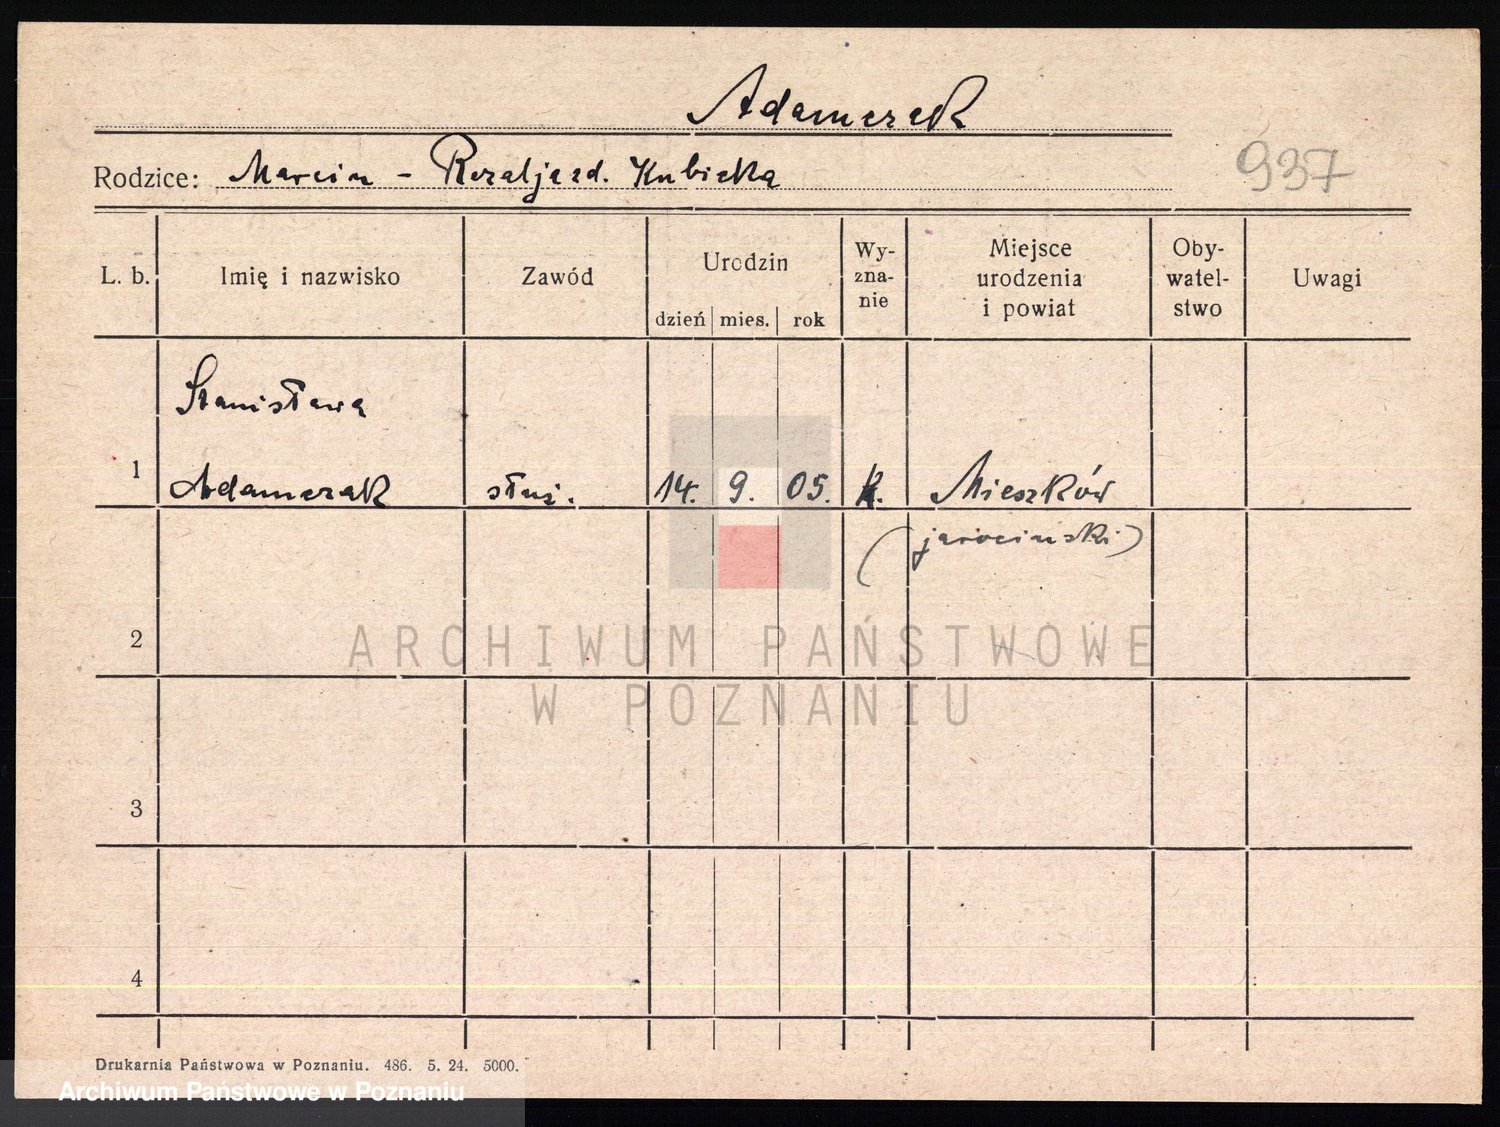 Adamczak
Rodzice: Marcin - Rozalja zd. Kubicka
937
L. b. Imię i nazwisko Zawód Urodzin dzień mies. rok Wy-zna-nie Miejsce urodzenia i powiat Oby-watel-stwo Uwagi
Stanisława
1 Adamczak służ. 14. 9. 05. k. Mieszków
(jarociński)
2
3
4
Drukarnia Państwowa w Poznaniu. 486. 5. 24. 5000.
ARCHIWUM PAŃSTWOWE
W POZNANIU
Archiwum Państwowe w Poznaniu